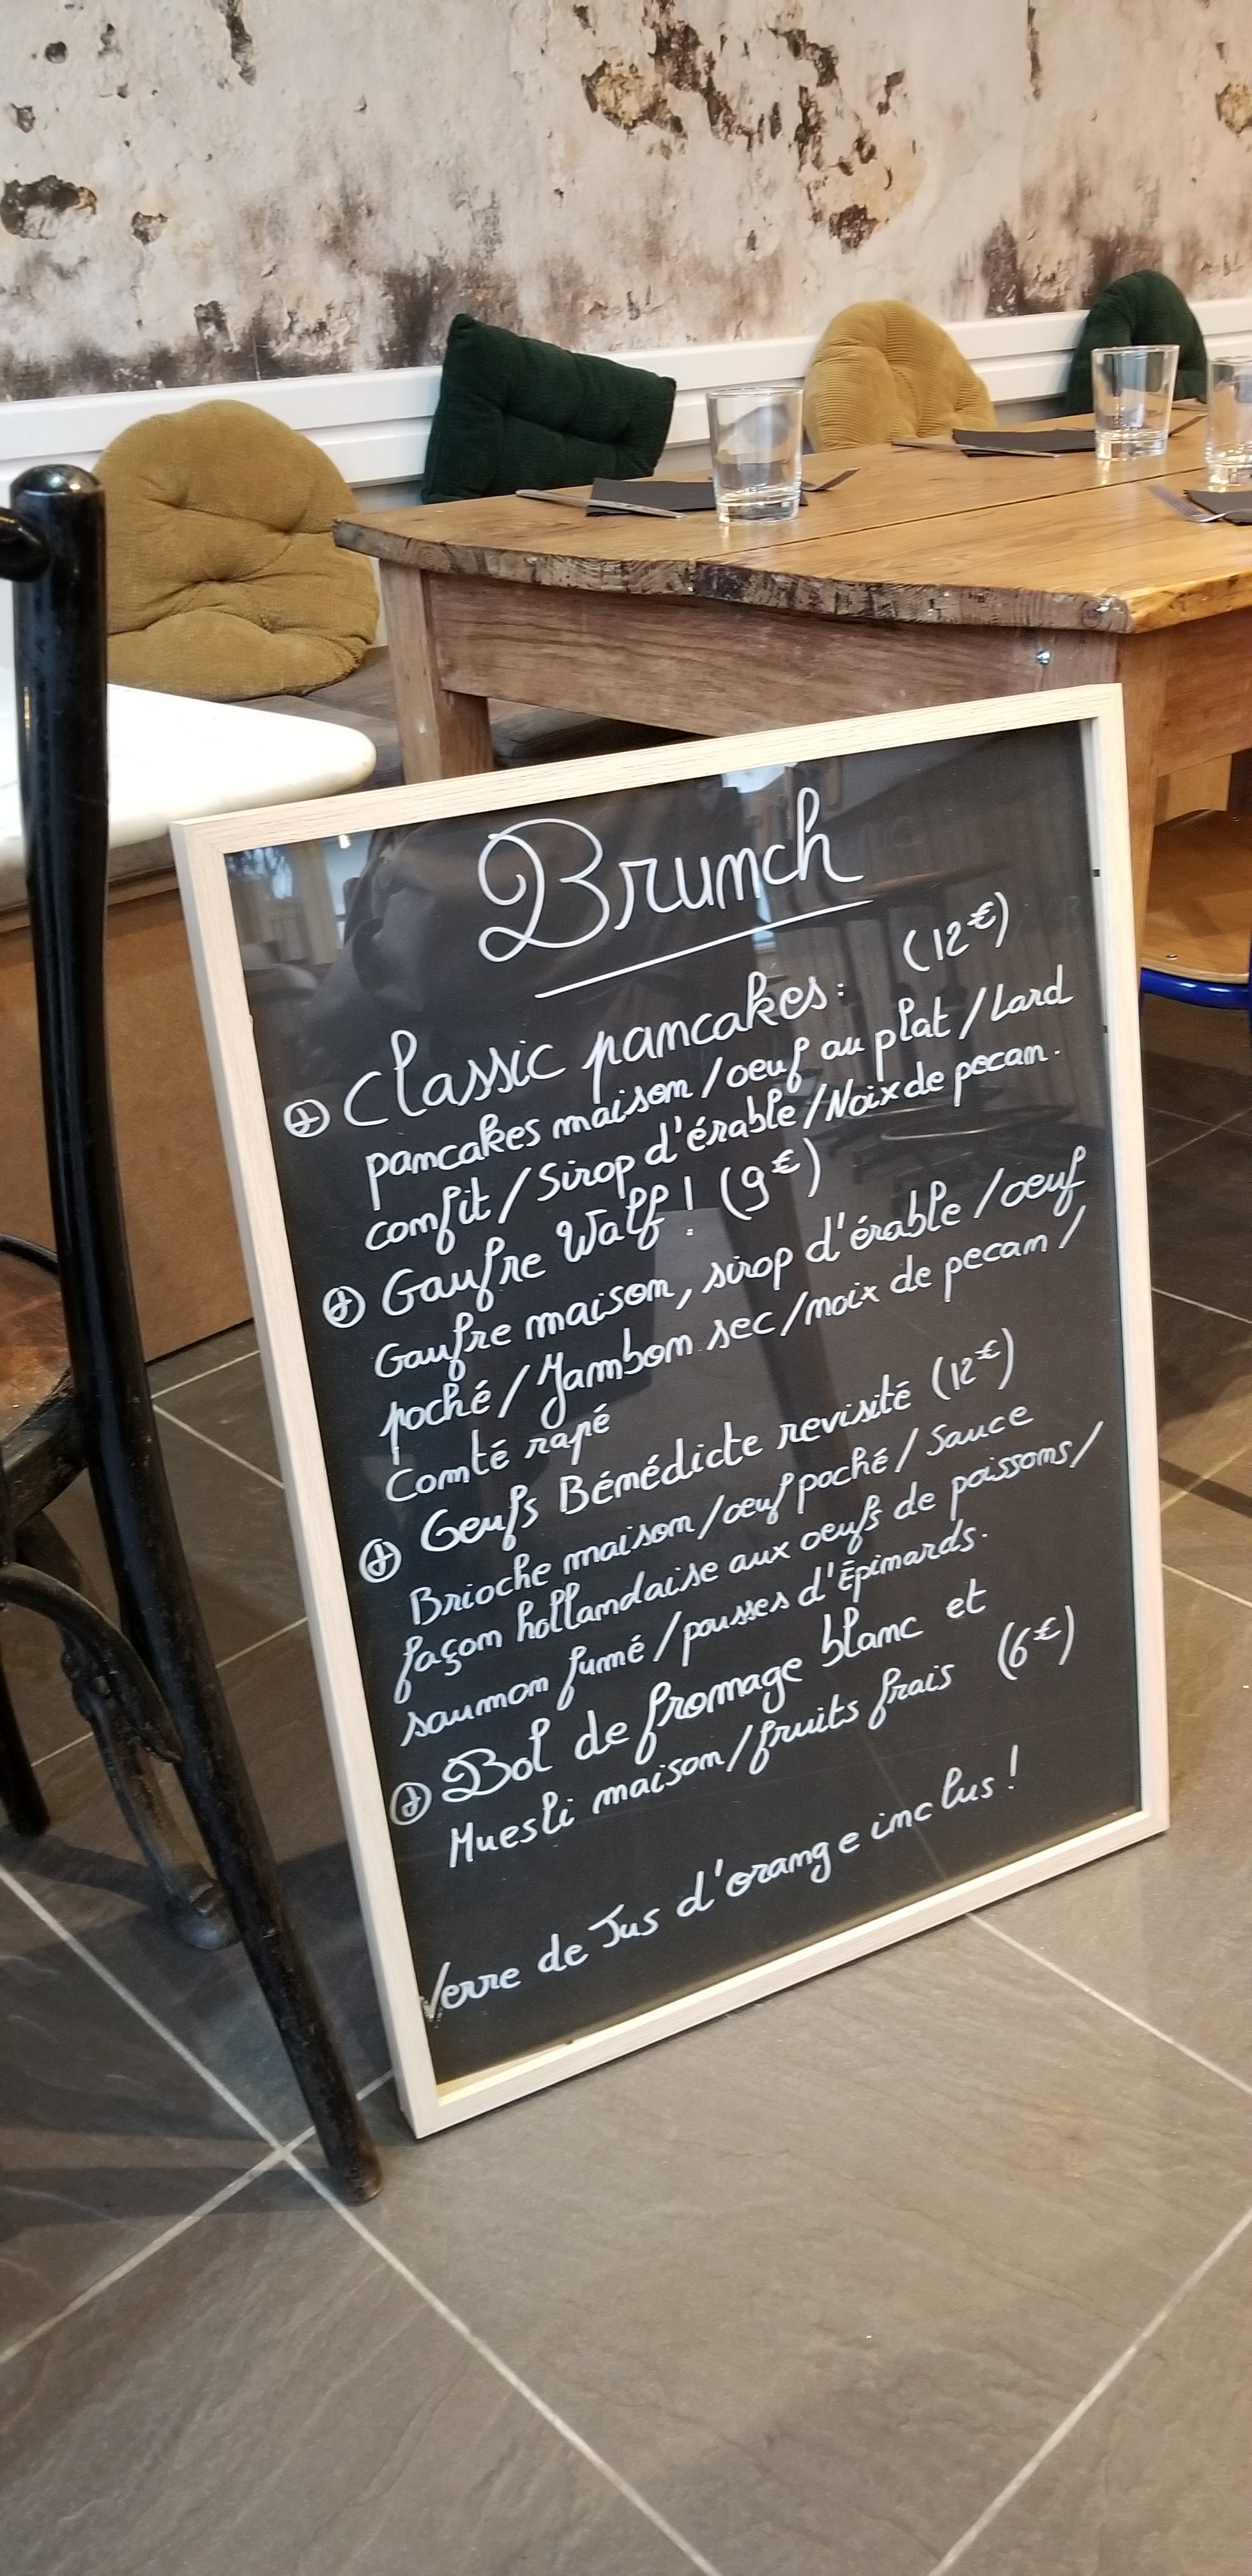 Brunch
Classic pancakes: (12€)
pancakes maison/oeuf au plat/Lard
confit/Sirop d'érable/Noix de pecan.
Gaufre Walf! (9€)
Gaufre maison, sirop d'érable/oeuf
poché/Jambon sec/noix de pecan/
Comté rapé
Oeufs Bénédicte revisité (12€)
Brioche maison/œuf poché/Sauce
façon hollandaise aux oeufs de poissons/
saumon fumé/pousses d'Épinards.
Bol de fromage blanc et
Muesli maison/fruits frais (6€)
Verre de Jus d'orange inclus!